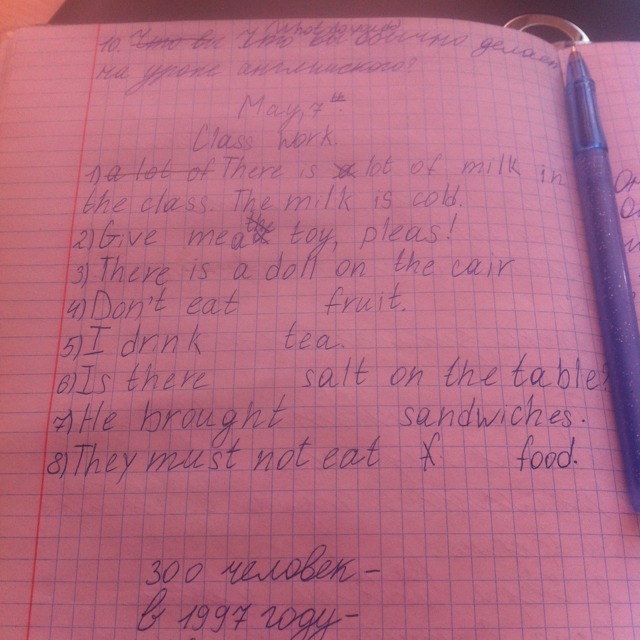 10. Что вы обычно делаете
на уроке английского?
May, 7th
Class work.
1) a lot of There is a lot of milk in
the class. The milk is cold.
2) Give me a toy, pleas!
3) There is a doll on the cair
4) Don't eat fruit.
5) I drink tea.
6) Is there salt on the table?
7) He brought sandwiches.
8) They must not eat food.
300 человек-
в 1997 году-